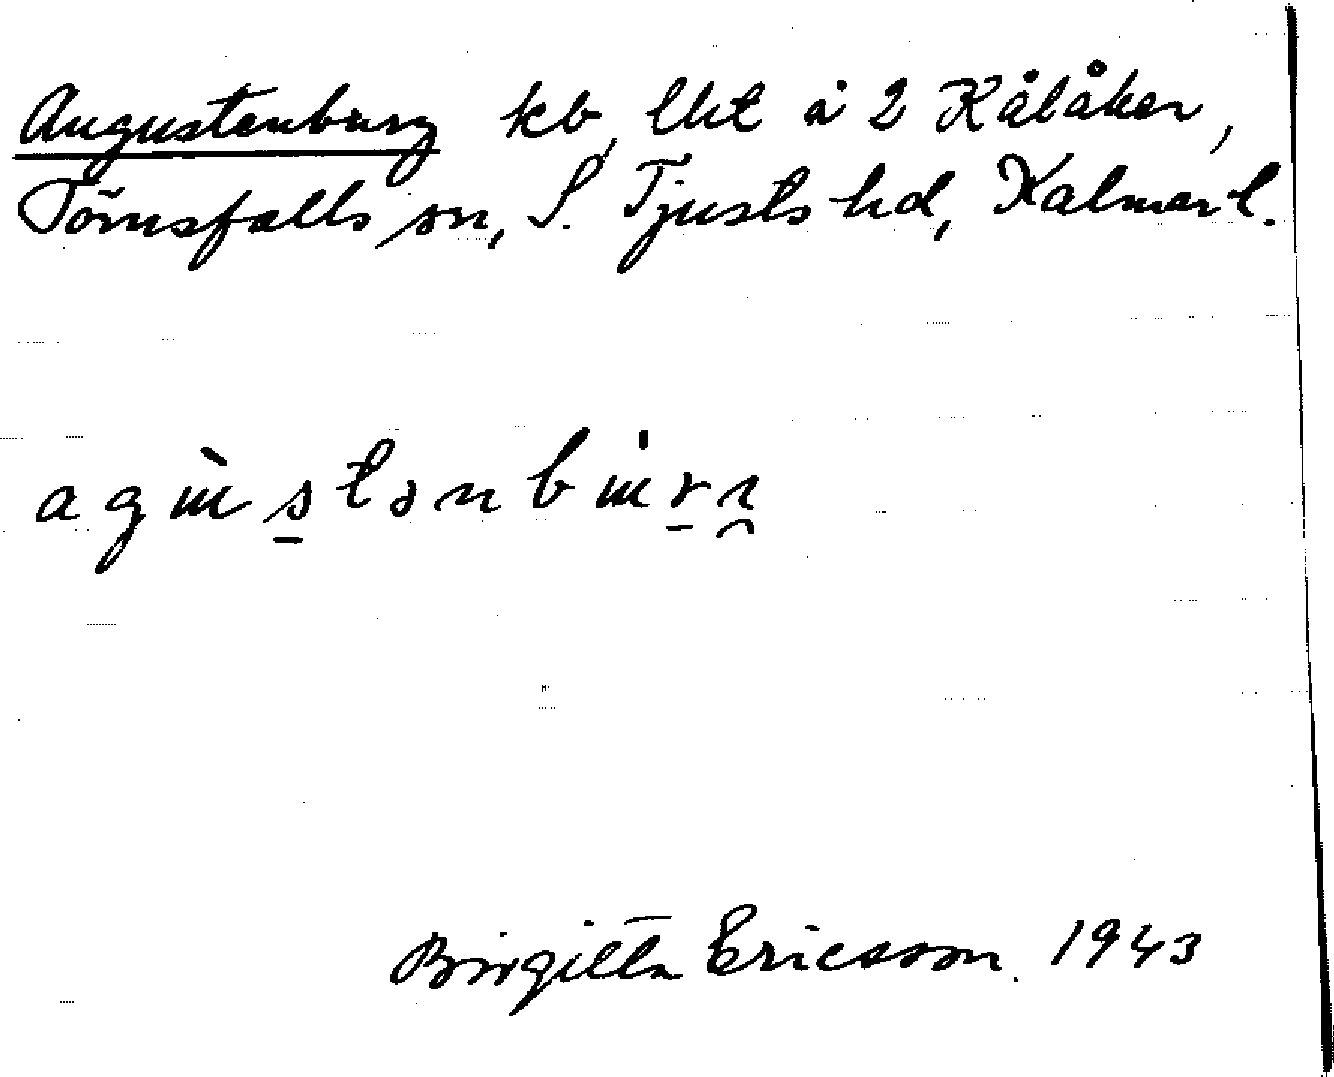 Augustenburg kb, lht å 2 Kålåker,
Törnsfalls sn, S. Tjusts hd, Kalmar l.
Birgitta Ericsson. 1943